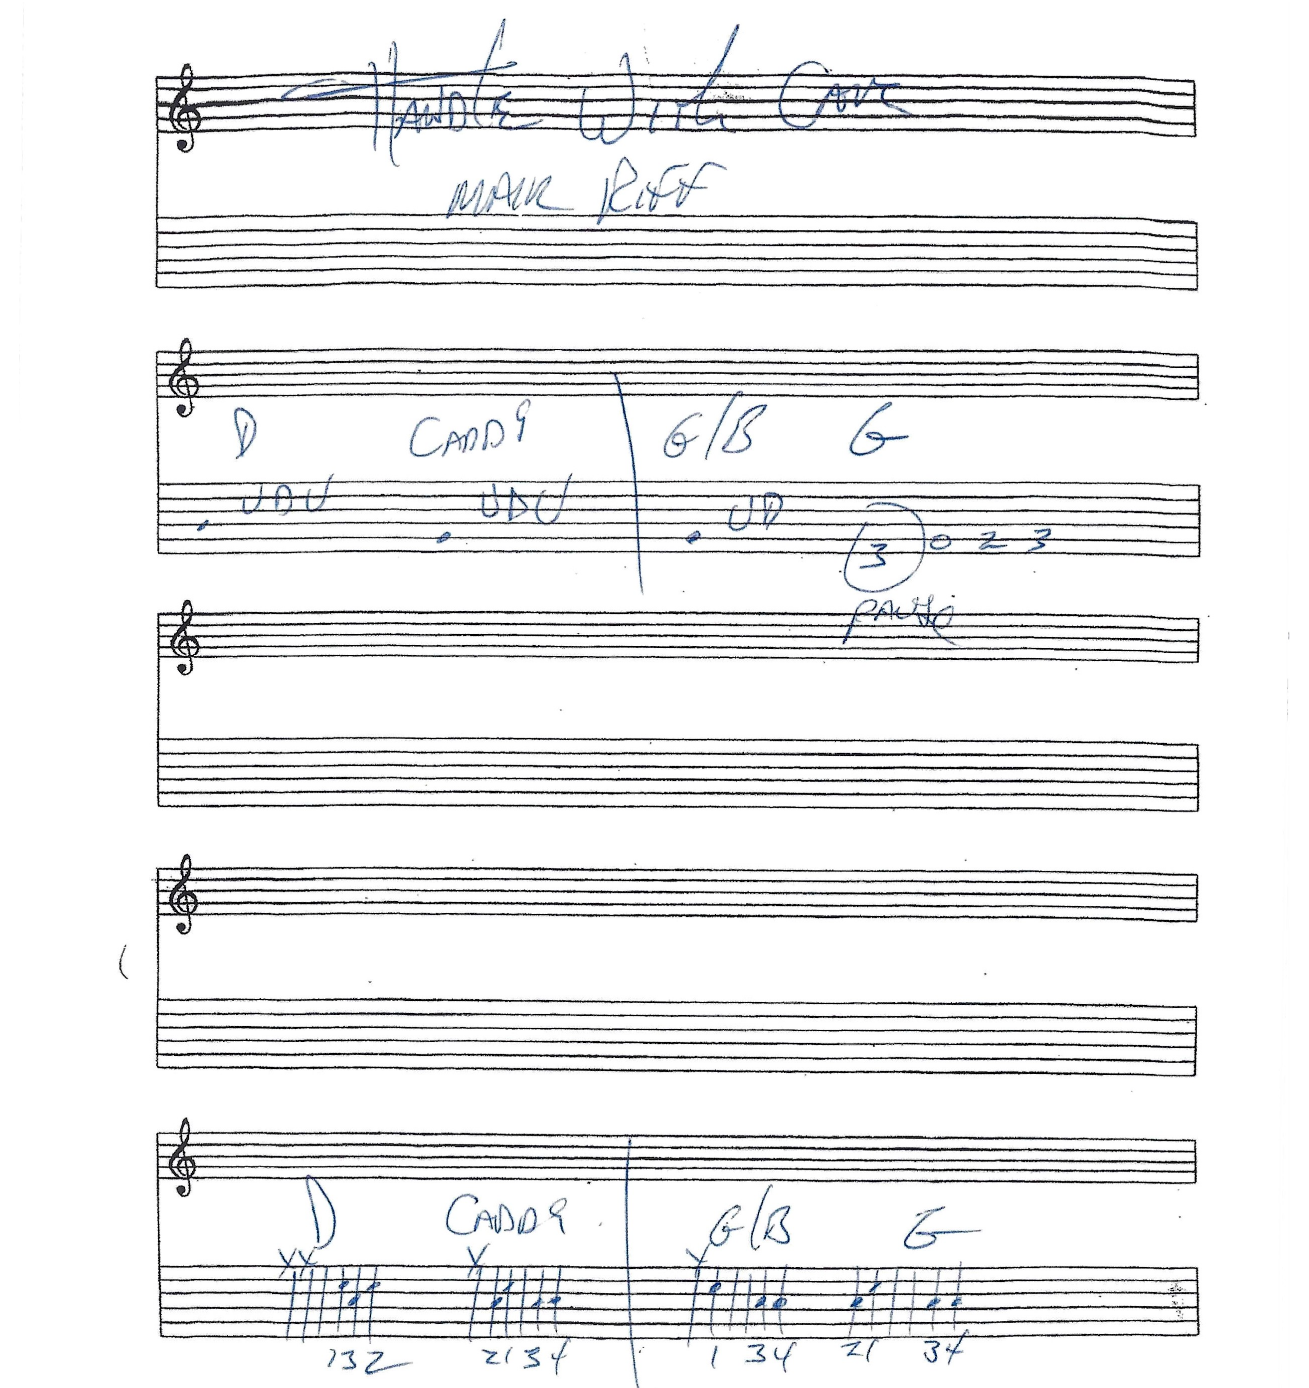 HANDLE WITH CARE
MAIN RIFF
D CADD9 G/B G
UDU UDU UD 3 0 2 3
PAUSE
D CADD9 G/B G
XX X X
132 2134 1 34 21 34